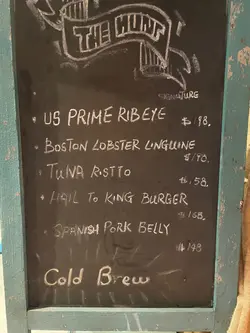 THE HUNT
SIGNATURE
• US PRIME RIBEYE $198.
• BOSTON LOBSTER LINGUINE $198.
• TUNA RISTTO $158.
• HAIL TO KING BURGER $168.
• SPANISH PORK BELLY $148
Cold Brew